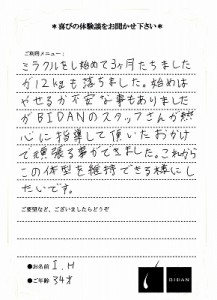 ＊喜びの体験談をお聞かせ下さい＊
ご利用メニュー：
ミラクルをし始めて3ヶ月たちました
が12kgも落ちました。始めは
やせるか不安な事もありました
がBIDANのスタッフさんが熱
心に指導して頂いたおかげ
で頑張る事ができました。これから
この体型を維持できる様にし
たいです。
ご要望など、ございましたらどうぞ
●お名前 I.H
●ご年齢 34才
BIDAN